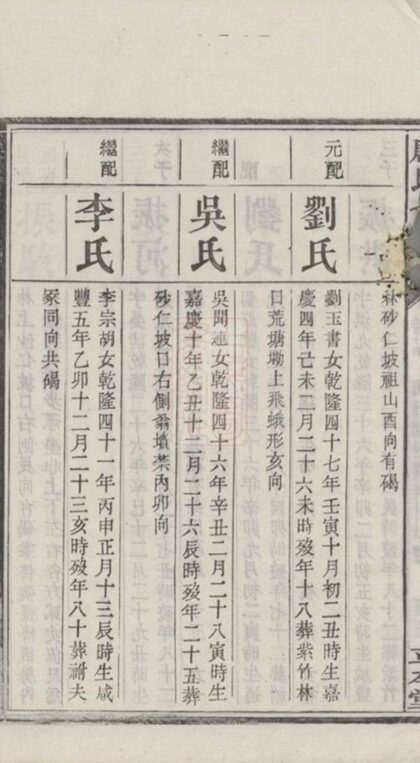 林砂仁坡祖山酉向有碣
元配
劉氏
劉玉書女乾隆四十七年壬寅十月初二丑時生嘉
慶四年己未二月二十六未時歿年十八葬紫竹林
口荒塘坳上飛蛾形亥向
繼配
吳氏
吳聞進女乾隆四十六年辛丑二月二十八寅時生
嘉慶十年乙丑十二月二十六辰時歿年二十五葬
砂仁坡口右側翁墳茔內卯向
繼配
李氏
李宗胡女乾隆四十一年丙申正月十三辰時生咸
豐五年乙卯十二月二十三亥時歿年八十葬祔夫
冢同向共碣